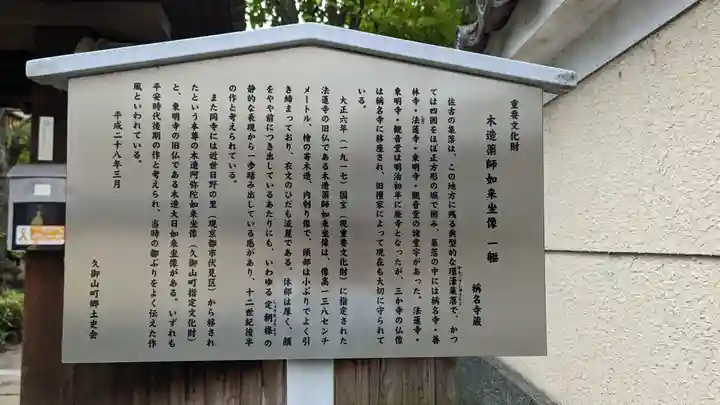 重要文化財
木造薬師如来坐像 一軀
称名寺蔵
佐古の集落は、この地方に残る典型的な環濠集落で、かつ
ては四囲をほぼ正方形の堀で囲み、集落の中には称名寺・善
林寺・法蓮寺・東明寺・観音堂の諸堂宇があった。法蓮寺・
東明寺・観音堂は明治初年に廃寺となったが、三か寺の仏像
は称名寺に移座され、旧檀家によって現在も大切に守られて
いる。
大正六年(一九一七)国宝(現重要文化財)に指定された
法蓮寺の旧仏である木造薬師如来坐像は、像高一三八センチ
メートル、檜の寄木造、内刳り像で、頭部は小ぶりでよく引
き締まっており、衣文のひだも流麗である。体部は厚く、顔
をやや前につき出しているあたりにも、いわゆる定朝様の
静的な表現から一歩踏み出している感があり、十二世紀後半
の作と考えられている。
また同寺には近世日野の里(現京都市伏見区)から移され
たという本尊の木造阿弥陀如来坐像(久御山町指定文化財)
と、東明寺の旧仏である木造大日如来坐像がある。いずれも
平安時代後期の作と考えられ、当時の都ぶりをよく伝えた作
風といわれている。
平成二十八年三月
久御山町郷土史会